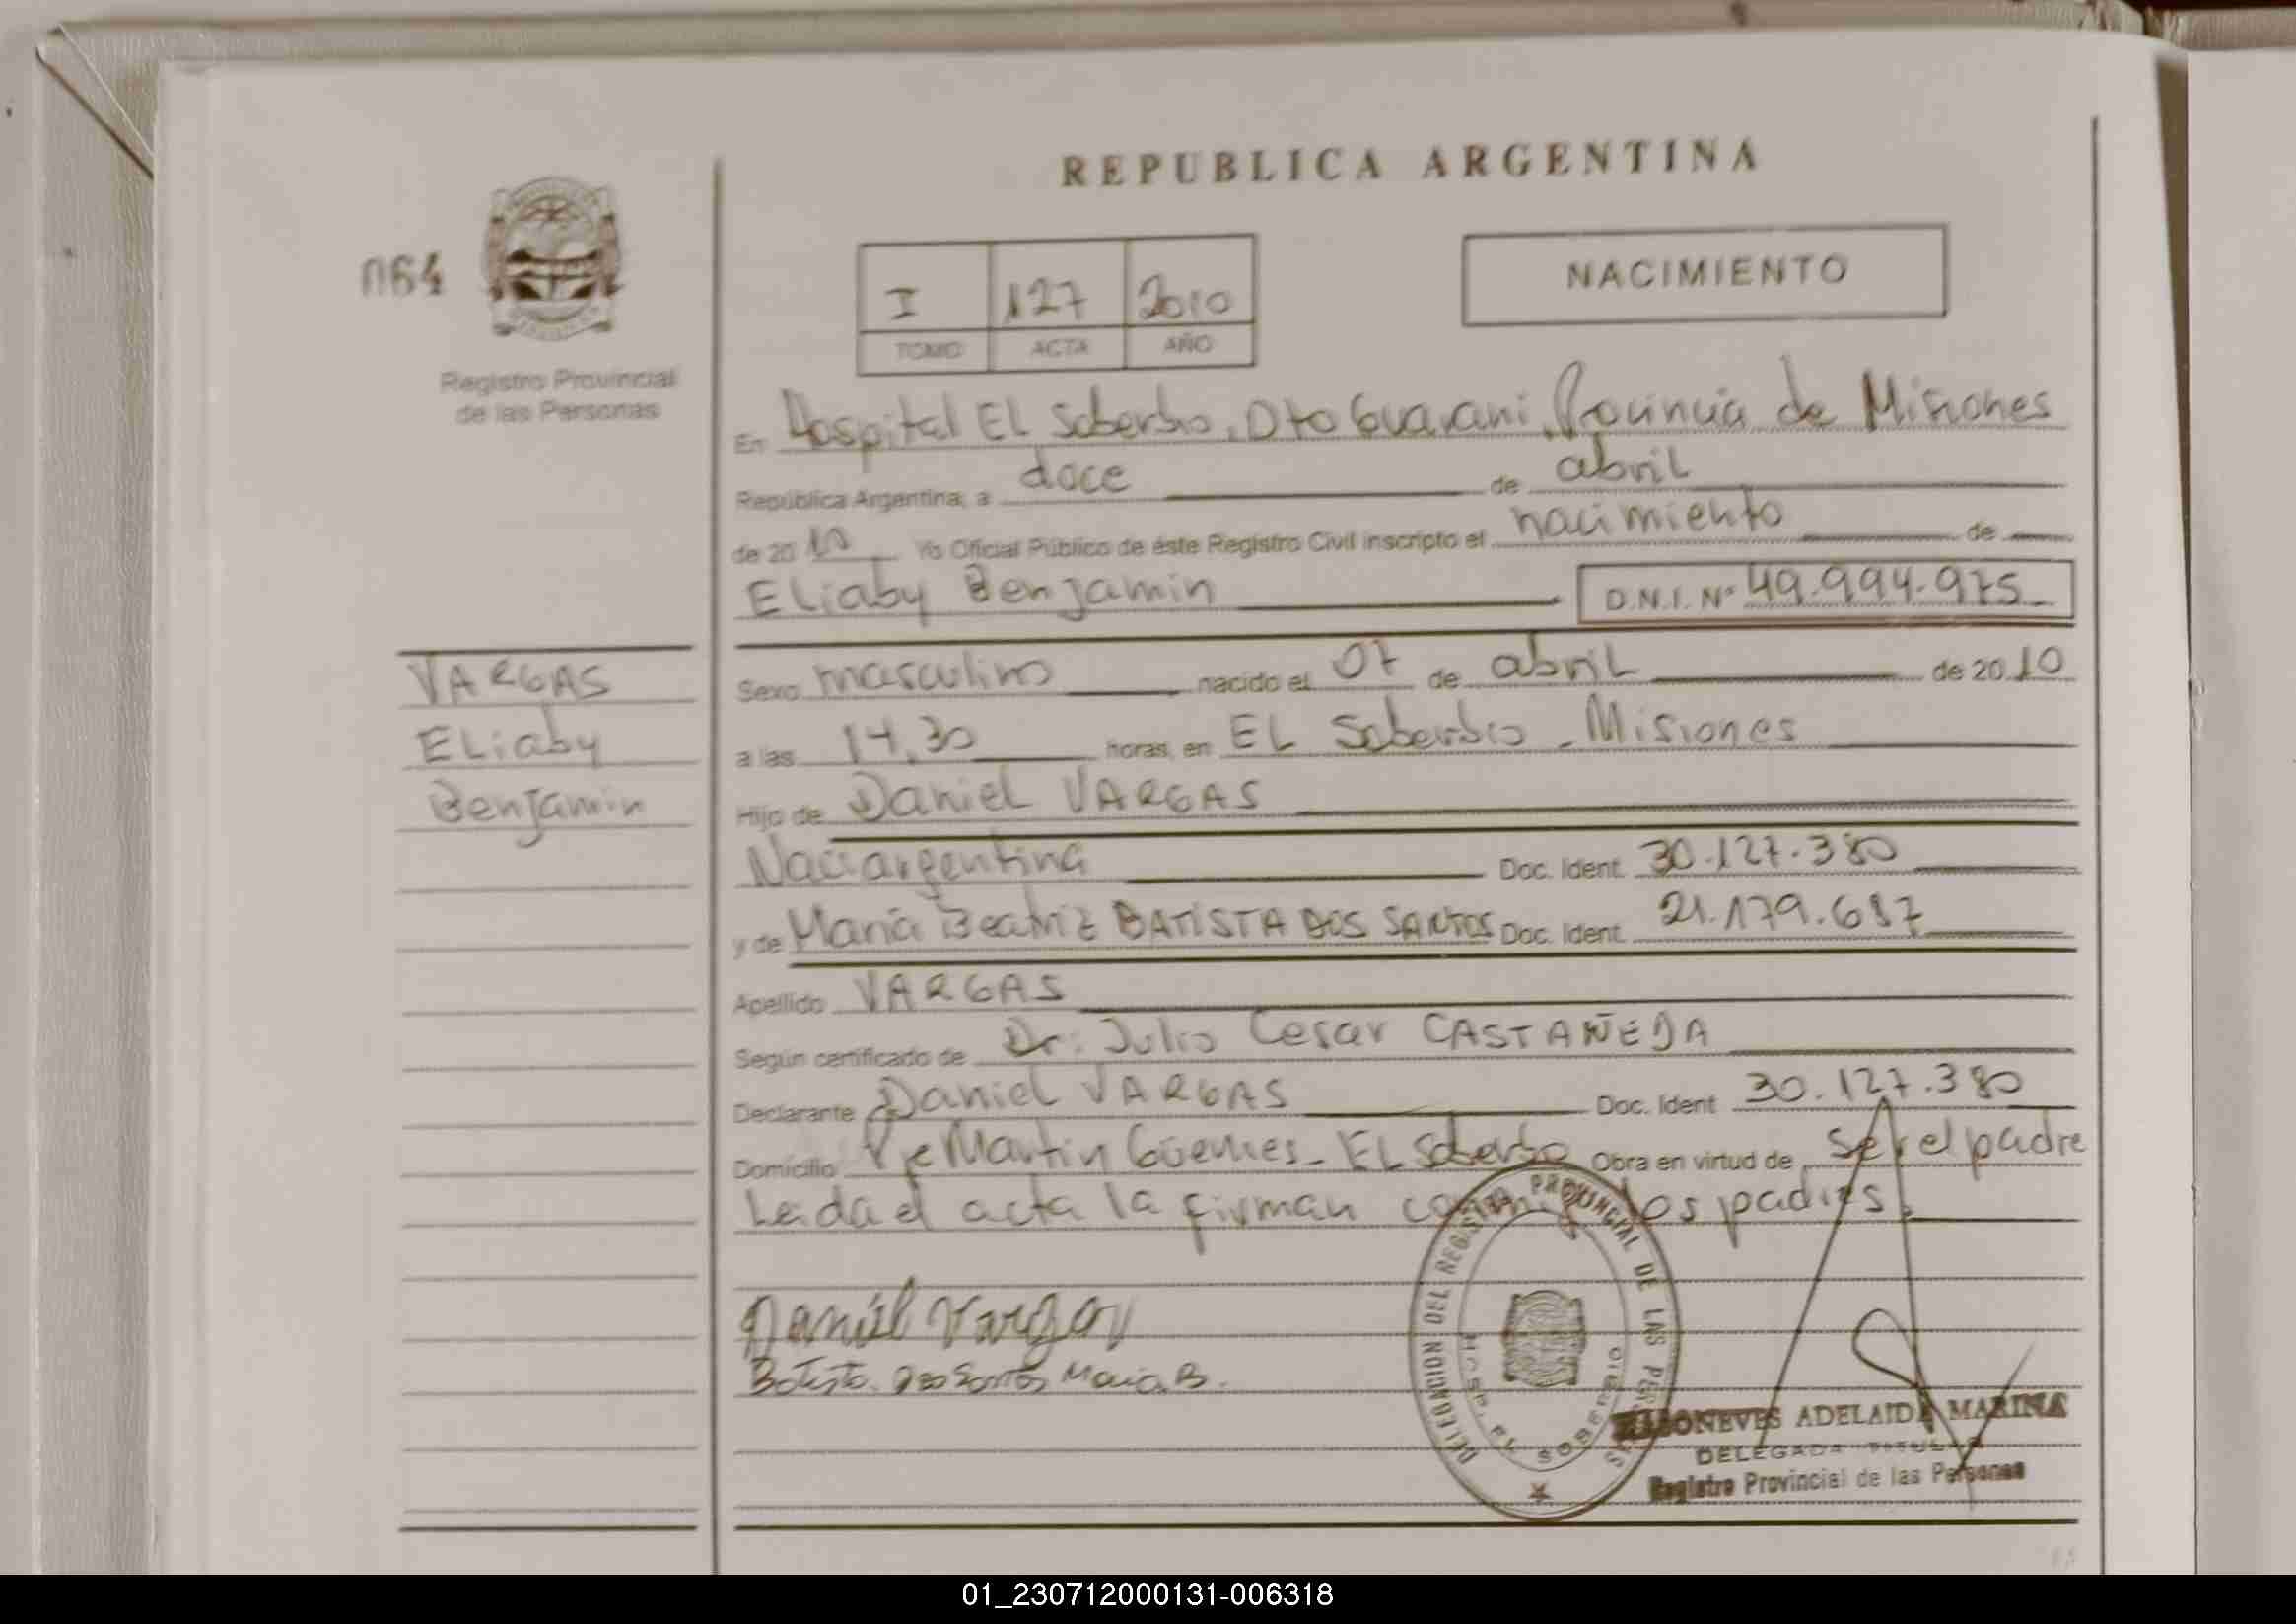 REPUBLICA ARGENTINA
064
I 127 2010
TOMO ACTA AÑO
NACIMIENTO
Registro Provincial
de las Personas
En Hospital El Soberbio, Dto Guarani, Provincia de Misiones
República Argentina, a doce de abril
de 2010 Yo Oficial Público de éste Registro Civil inscripto el nacimiento de
Eliaby Benjamin D.N.I. Nº 49.994.975
VARGAS
Eliaby
Benjamin
Sexo masculino nacido el 07 de abril de 2010
a las 14,30 horas, en El Soberbio - Misiones
Hijo de Daniel VARGAS
Nac. argentina Doc. Ident. 30.127.380
y de Maria Beatriz BATISTA DOS SANTOS Doc. Ident. 21.179.687
Apellido VARGAS
Según certificado de Dr: Julio Cesar CASTAÑEDA
Declarante Daniel VARGAS Doc. Ident 30.127.380
Domicilio Pje Martin Güemes - El Soberbio Obra en virtud de ser el padre
Leida el acta la firman los padres.
Daniel Vargas
Batista Dos Santos Maria B.
DELEGACION DEL REGISTRO PROVINCIAL DE LAS PERSONAS
EL SOBERBIO
ADELAIDA MARINA
DELEGADA TITULAR
Registro Provincial de las Personas
01_230712000131-006318